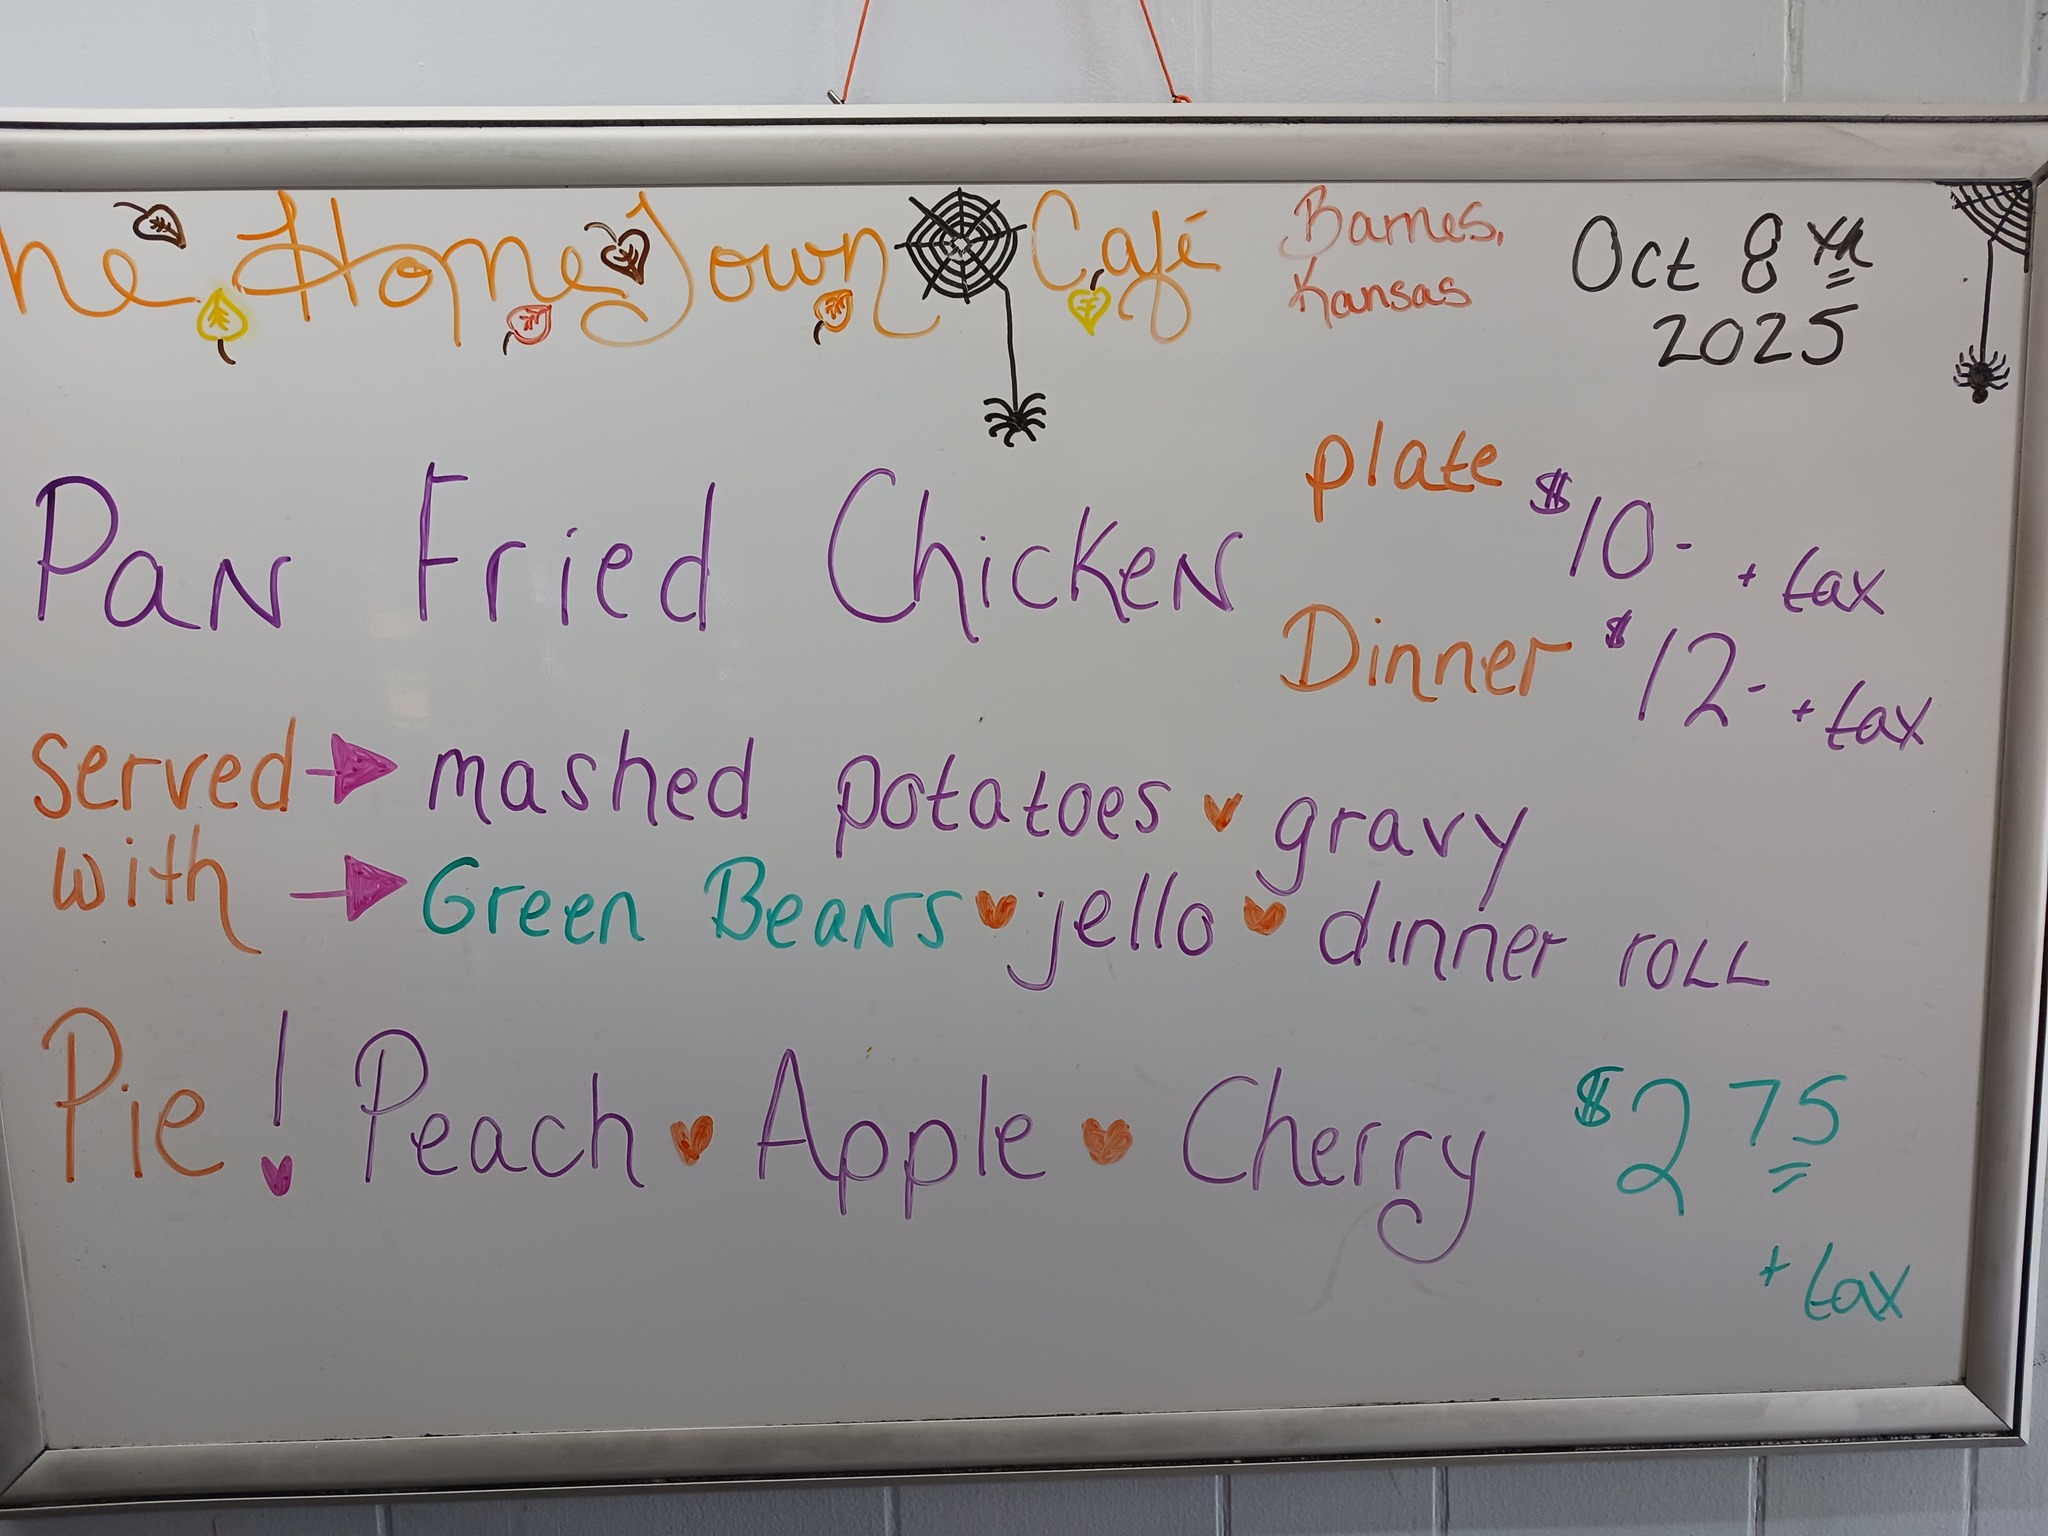 he HomeTown Café
Barnes,
Kansas
Oct 8th
2025
Pan Fried Chicken
plate $10- + tax
Dinner $12- + tax
served mashed potatoes gravy
with Green Beans jello dinner roll
Pie! Peach Apple Cherry $2 75
+ tax